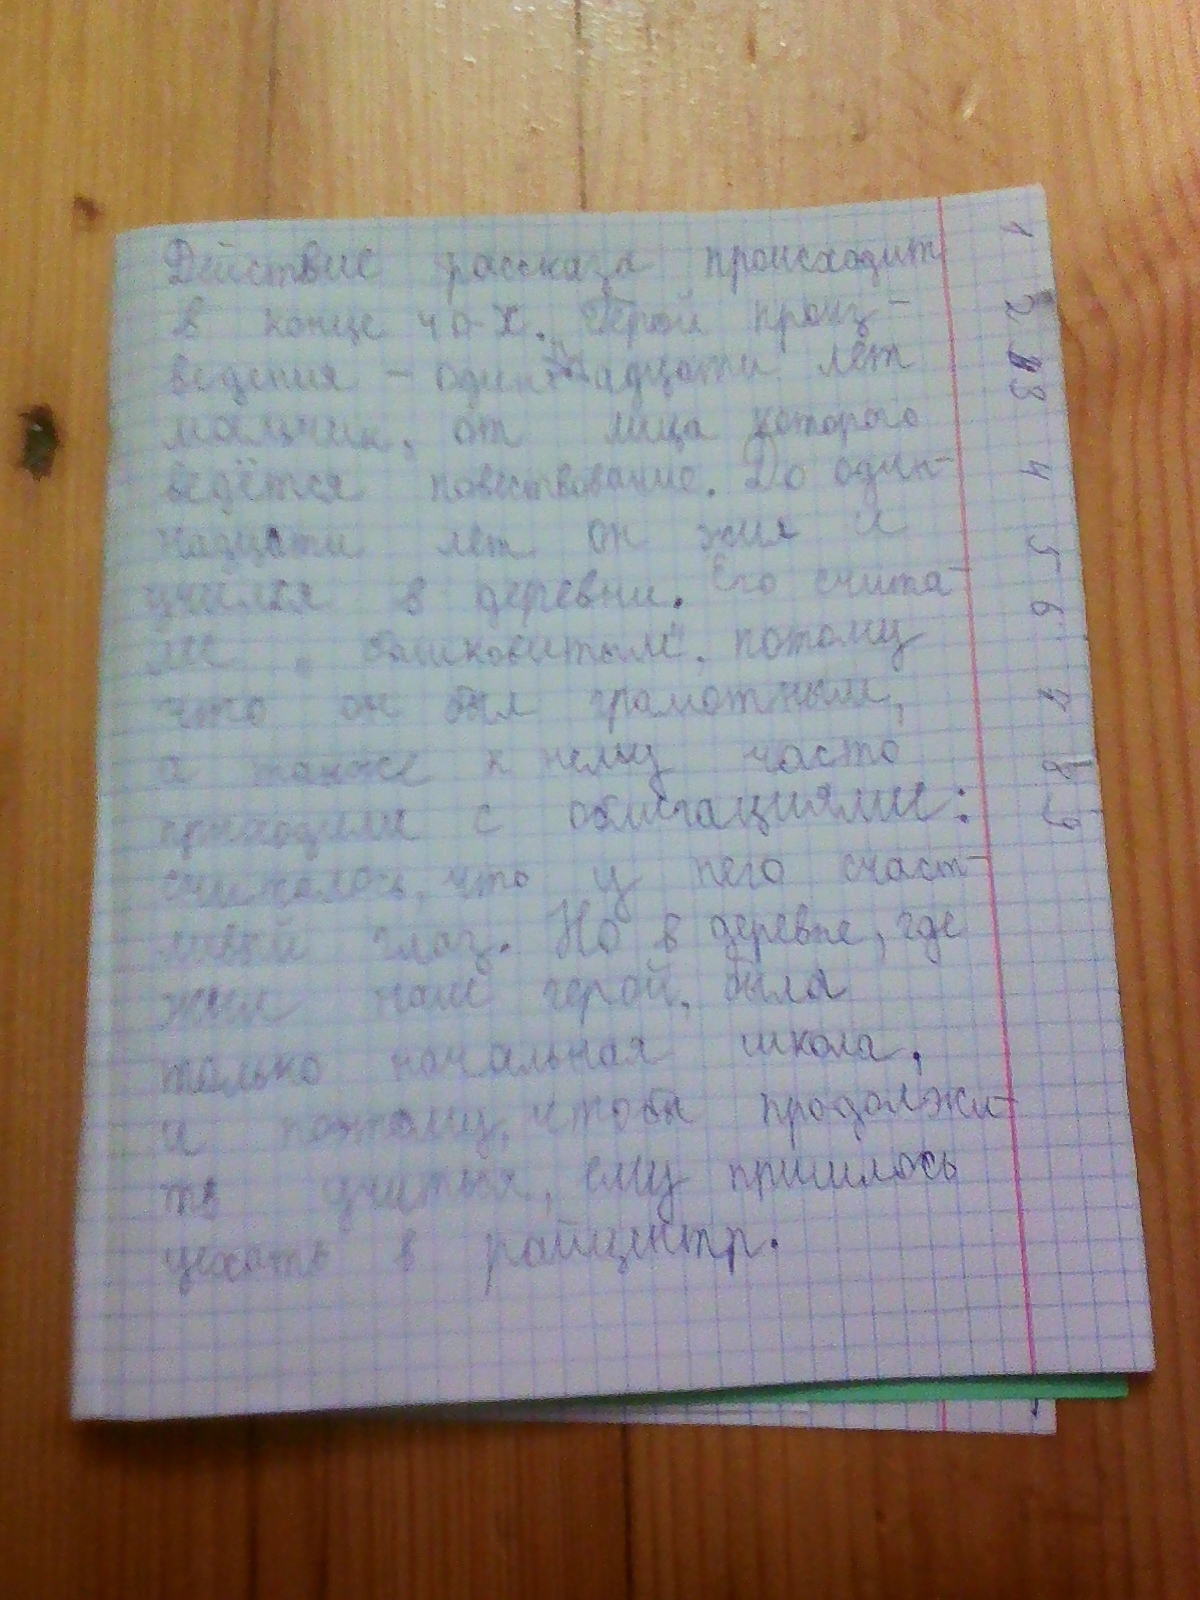 Действие рассказа происходит
в конце 40-х. Герой произ-
ведения – одиннадцати лет
мальчик, от лица которого
ведётся повествование. До один-
надцати лет он жил и
учился в деревни. Его счита-
ли "башковитым", потому
что он был грамотным,
а также к нему часто
приходили с облигациями:
считалось, что у него счаст-
ливый глаз. Но в деревне, где
жил наш герой, была
только начальная школа,
и поэтому, чтобы продолжи-
ть учиться, ему пришлось
уехать в райцентр.
1
2
3
4
5
6
7
8
9